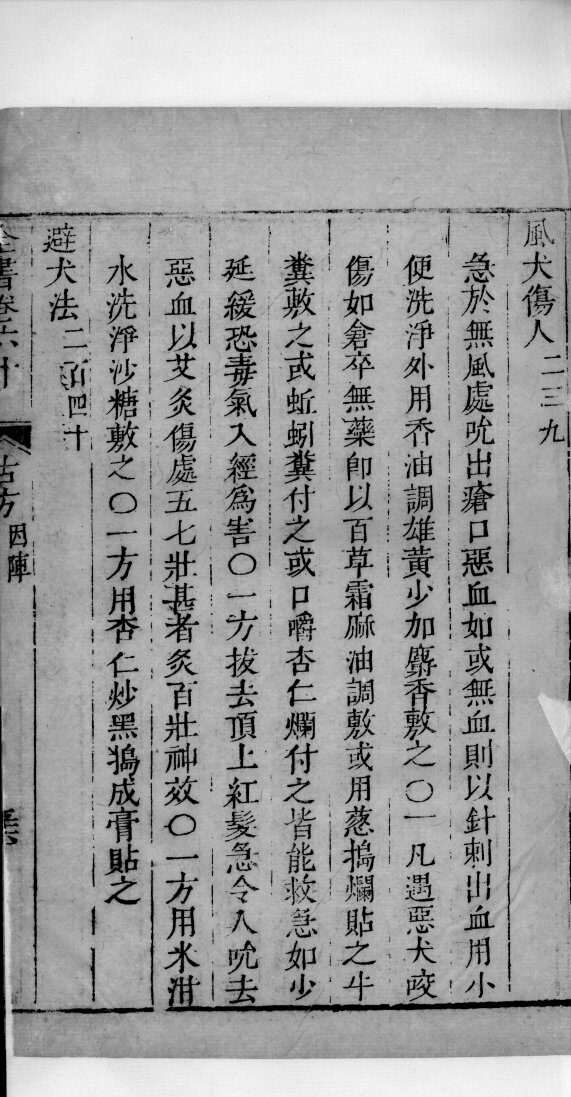 風犬傷人 二三九
急於無風處吮出瘡口惡血如或無血則以針刺出血用小
便洗淨外用香油調雄黃少加麝香敷之〇一凡遇惡犬咬
傷如倉卒無藥卽以百草霜麻油調敷或用葱搗爛貼之牛
糞敷之或蚯蚓糞付之或口嚼杏仁爛付之皆能救急如少
延緩恐毒氣入經爲害〇一方拔去頂上紅髮急令人吮去
惡血以艾灸傷處五七壯甚者灸百壯神效〇一方用米泔
水洗淨沙糖敷之〇一方用杏仁炒黑搗成膏貼之
避犬法 二百四十
全書卷六十 古方 因陣